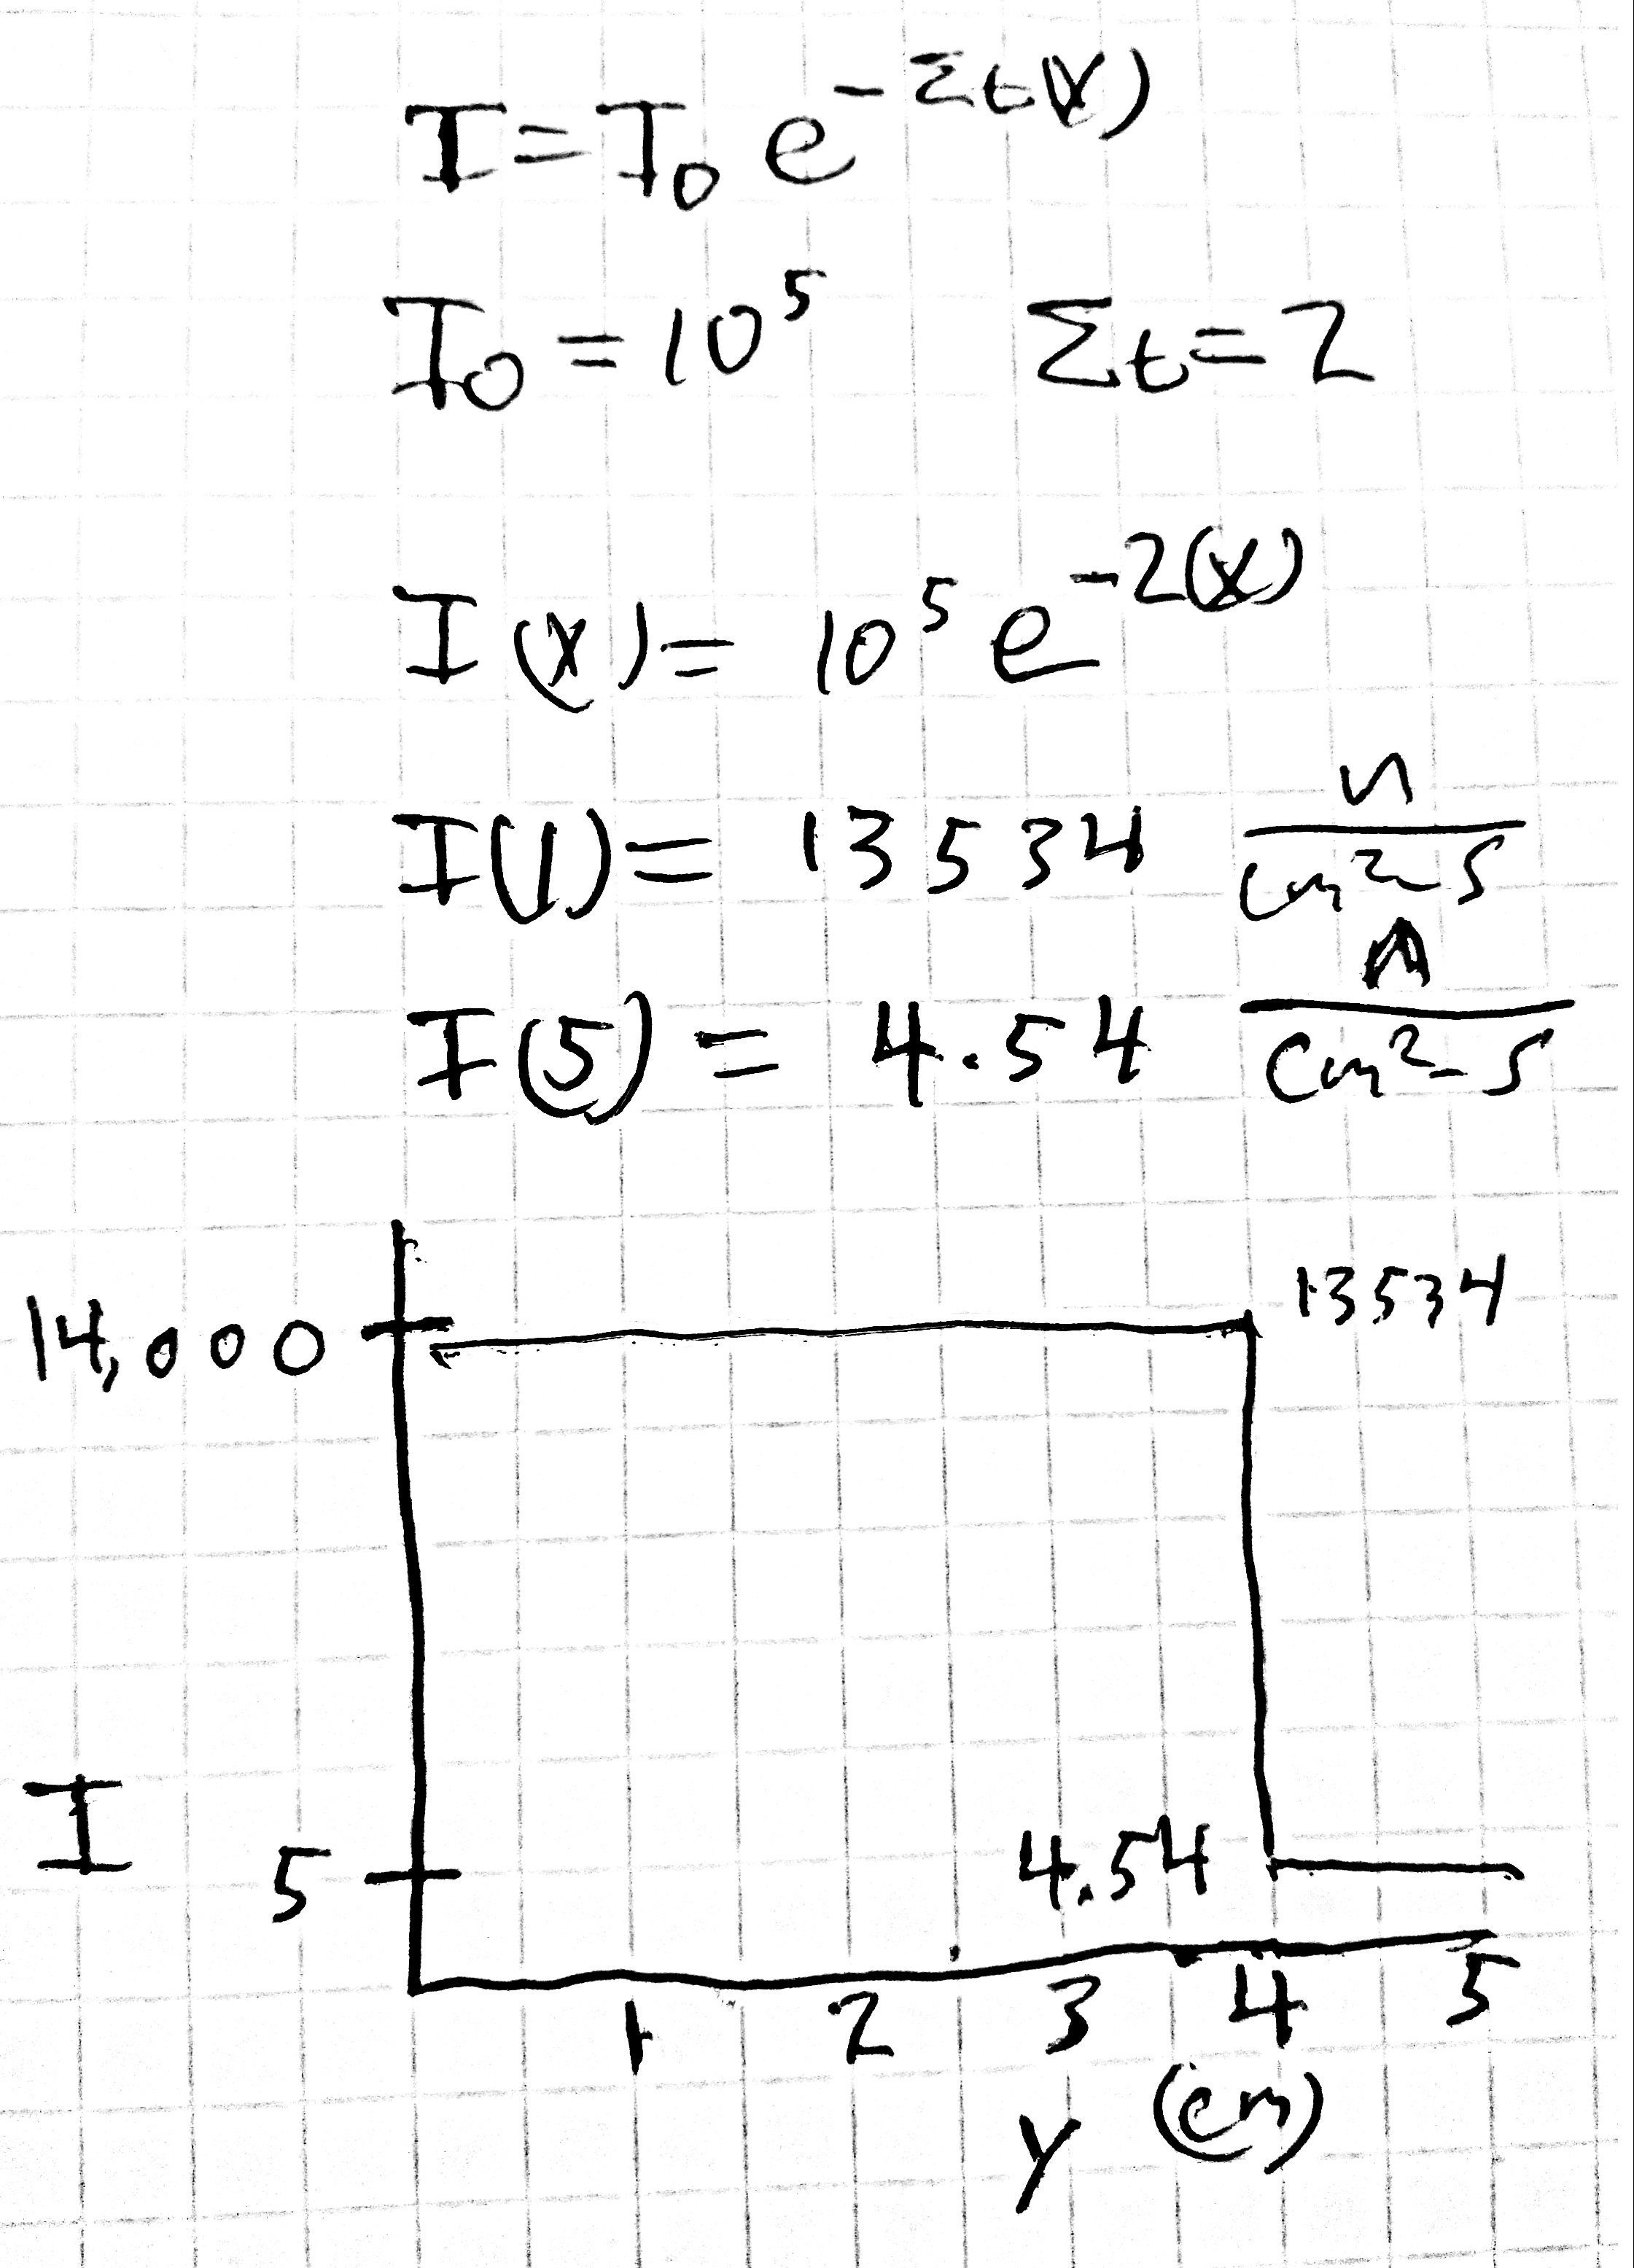 I = I₀ e^(-Σt(x))
I₀ = 10⁵ Σt = 2
I(x) = 10⁵ e^(-2(x))
I(1) = 13534 n/cm²-s
I(5) = 4.54 n/cm²-s
13534
14,000
4.54
I
5
1 2 3 4 5
y (cm)